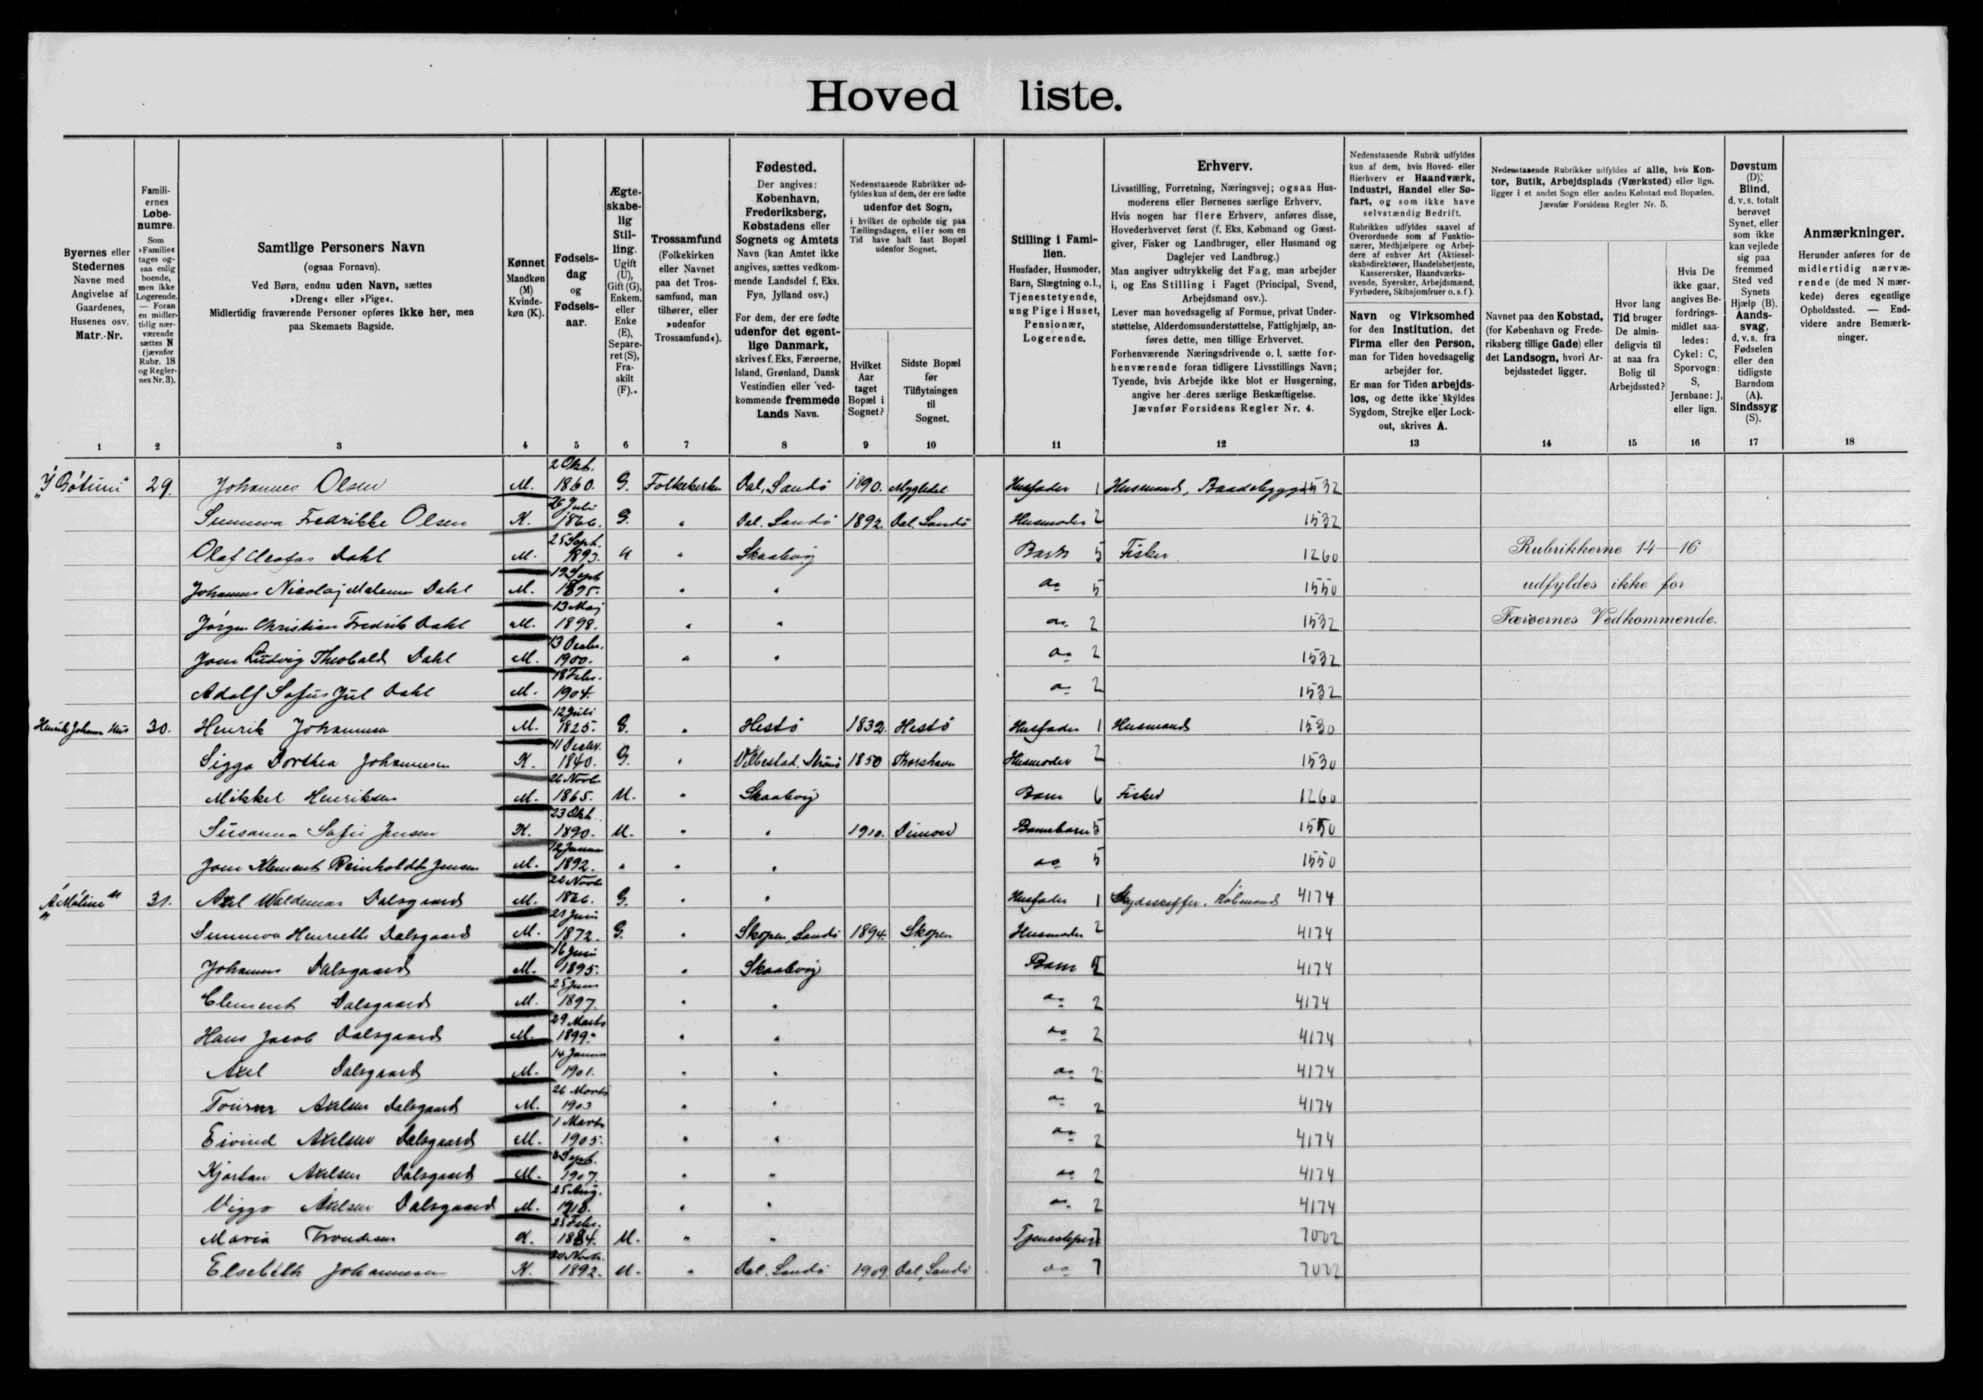 Hoved liste.
Byernes eller Stedernes Navne med Angivelse af Gaardenes, Husenes osv. Matr.-Nr.
Familiernes Løbenumre. Som »Familie« tages ogsaa enlig boende, men ikke Logerende. — Foran en midlertidig nærværende sættes N (jævnfør Rubr. 18 og Regler-nes Nr. 3).
Samtlige Personers Navn (ogsaa Fornavn). Ved Børn, endnu uden Navn, sættes »Dreng« eller »Pige«. Midlertidig fraværende Personer opføres ikke her, men paa Skemaets Bagside.
Kønnet Mandkøn (M) Kvindekøn (K).
Fødselsdag og Fødselsaar.
Ægteskabelig Stilling. Ugift (U), Gift (G), Enkem. eller Enke (E), Separeret (S), Fraskilt (F).
Trossamfund (Folkekirken eller Navnet paa det Trossamfund, man tilhører, eller »udenfor Trossamfund«).
Fødested. Der angives: København, Frederiksberg, Købstadens eller Sognets og Amtets Navn (kan Amtet ikke angives, sættes vedkommende Landsdel f. Eks. Fyn, Jylland osv.) For dem, der ere fødte udenfor det egentlige Danmark, skrives f. Eks. Færøerne, Island, Grønland, Dansk Vestindien eller vedkommende fremmede Lands Navn.
Nedenstaaende Rubrikker udfyldes kun af dem, der ere fødte udenfor det Sogn, i hvilket de opholde sig paa Tællingsdagen, eller som en Tid have haft fast Bopæl udenfor Sognet.
Hvilket Aar taget Bopæl i Sognet?
Sidste Bopæl før Tilflytningen til Sognet.
Stilling i Familien. Husfader, Husmoder, Barn, Slægtning o. l., Tjenestetyende, ung Pige i Huset, Pensionær, Logerende.
Erhverv. Livsstilling, Forretning, Næringsvej; ogsaa Husmoderens eller Børnenes særlige Erhverv. Hvis nogen har flere Erhverv, anføres disse, Hovederhvervet først (f. Eks. Købmand og Gæstgiver, Fisker og Landbruger, eller Husmand og Daglejer ved Landbrug.) Man angiver udtrykkelig det Fag, man arbejder i, og Ens Stilling i Faget (Principal, Svend, Arbejdsmand osv.). Lever man hovedsagelig af Formue, privat Understøttelse, Alderdomsunderstøttelse, Fattighjælp, anføres dette, men tillige Erhvervet. Forhenværende Næringsdrivende o. l. sætte forhenværende foran tidligere Livsstillings Navn; Tyende, hvis Arbejde ikke blot er Husgerning, angive her deres særlige Beskæftigelse. Jævnfør Forsidens Regler Nr. 4.
Nedenstaaende Rubrik udfyldes kun af dem, hvis Hoved- eller Bierhverv er Haandværk, Industri, Handel eller Søfart, og som ikke have selvstændig Bedrift. Rubrikken udfyldes saavel af Overordnede som af Funktionærer, Medhjælpere og Arbejdere af enhver Art (Aktieselskabsdirektører, Handelsbetjente, Kasserersker, Haandværkssvende, Syersker, Arbejdsmænd, Fyrbødere, Skibsjomfruer o. s. f.).
Navn og Virksomhed for den Institution, det Firma eller den Person, man for Tiden hovedsagelig arbejder for. Er man for Tiden arbejdsløs, og dette ikke skyldes Sygdom, Strejke eller Lockout, skrives A.
Nedenstaaende Rubrikker udfyldes af alle, hvis Kontor, Butik, Arbejdsplads (Værksted) eller lign. ligger i et andet Sogn eller anden Købstad end Bopælen. Jævnfør Forsidens Regler Nr. 5.
Navnet paa den Købstad, (for København og Frederiksberg tillige Gade) eller det Landsogn, hvori Arbejdsstedet ligger.
Hvor lang Tid bruger De almindeligvis til at naa fra Bolig til Arbejdssted?
Hvis De ikke gaar, angives Befordringsmidlet saaledes: Cykel: C, Sporvogn: S, Jernbane: J, eller lign.
Døvstum (D); Blind, d. v. s. totalt berøvet Synet, eller som ikke kan vejlede sig paa fremmed Sted ved Synets Hjælp (B). Aandssvag, d. v. s. fra Fødselen eller den tidligste Barndom (A). Sindssyg (S).
Anmærkninger. Herunder anføres for de midlertidig nærværende (de med N mærkede) deres egentlige Opholdssted. — Endvidere andre Bemærkninger.
1 2 3 4 5 6 7 8 9 10 11 12 13 14 15 16 17 18
29. Johannes Olsen M. 2 Okt. 1860. G. Folkekirken Dal, Sandö 1890. Husfader 1 Husmand, Baadebygger 1532
Sunneva Fredrikke Olsen K. 26 Juli 1866. G. " Dal. Sandö 1892. Dal Sandö Husmoder 2 1532
Olaf Cleofas Dahl M. 25 Sept. 1893. U " Skaalevig Barn 5 Fisker 1260 Rubrikkerne 14—16
Johannes Nicolaj Dahl M. 12 Sept 1895. " " do 5 1550 udfyldes ikke for
Jørgen Christian Fredrik Dahl M. 13 Maj 1898. " " do 2 1532 Færöernes Vedkommende.
Joen Ludvig Theobald Dahl M. 13 Decbr. 1900. " do 2 1532
Adolf Sofus Jul Dahl M. 18 Febr. 1904. do 2 1532
30. Henrik Johannesen M. 12 Juli 1825. G. " Hestö 1832. Hestö Husfader 1 Husmand 1530
Sigga Dorthea Johannesen K. 11 Decbr. 1840. G. " Velbestad, Strömö 1850 Thorshavn Husmoder 2 1530
Mikkel Henriksen M. 26 Novb 1865. U. " Skaalevig Barn 6 Fisker 1260
Susanna Sofie Jensen K. 23 Okt. 1890. U. " " 1910. Dimon Barnebarn 5 1550
Joen Klement Reinholdt Jensen M. 12 Januar 1892. " " " do 5 1550
31. Axel Waldemar Dalsgaard M. 22 Novb 1866. G. " Husfader 1 Skydsskaffer, Købmand 4174
Sunneva Henriette Dalsgaard M. 21 Juni 1872. G. " Skopen, Sandö 1894. Skopen Husmoder 2 4174
Johannes Dalsgaard M. 16 Juni 1895. " Skaalevig Barn 2 4174
Clement Dalsgaard M. 25 Juni 1897. " " do 2 4174
Hans Jacob Dalsgaard M. 29 Marts 1899. " " do 2 4174
Axel Dalsgaard M. 14 Januar 1901. " " do 2 4174
Axelsen Dalsgaard M. 26 Marts 1903 " " do 2 4174
Eivind Axelsen Dalsgaard M. 1 Marts 1905. " " do 2 4174
Kjartan Axelsen Dalsgaard M. 3 Sept. 1907. " " do 2 4174
Viggo Axelsen Dalsgaard M. 25 Aug. 1910. " " do 2 4174
Maria Trondesen K. 25 Febr. 1884. U. " " Tjenestepige 7 7002
Elsebeth Johannesen K. 20 Novb. 1892. U. " Dal. Sandö 1909. Dal, Sandö do 7 7002